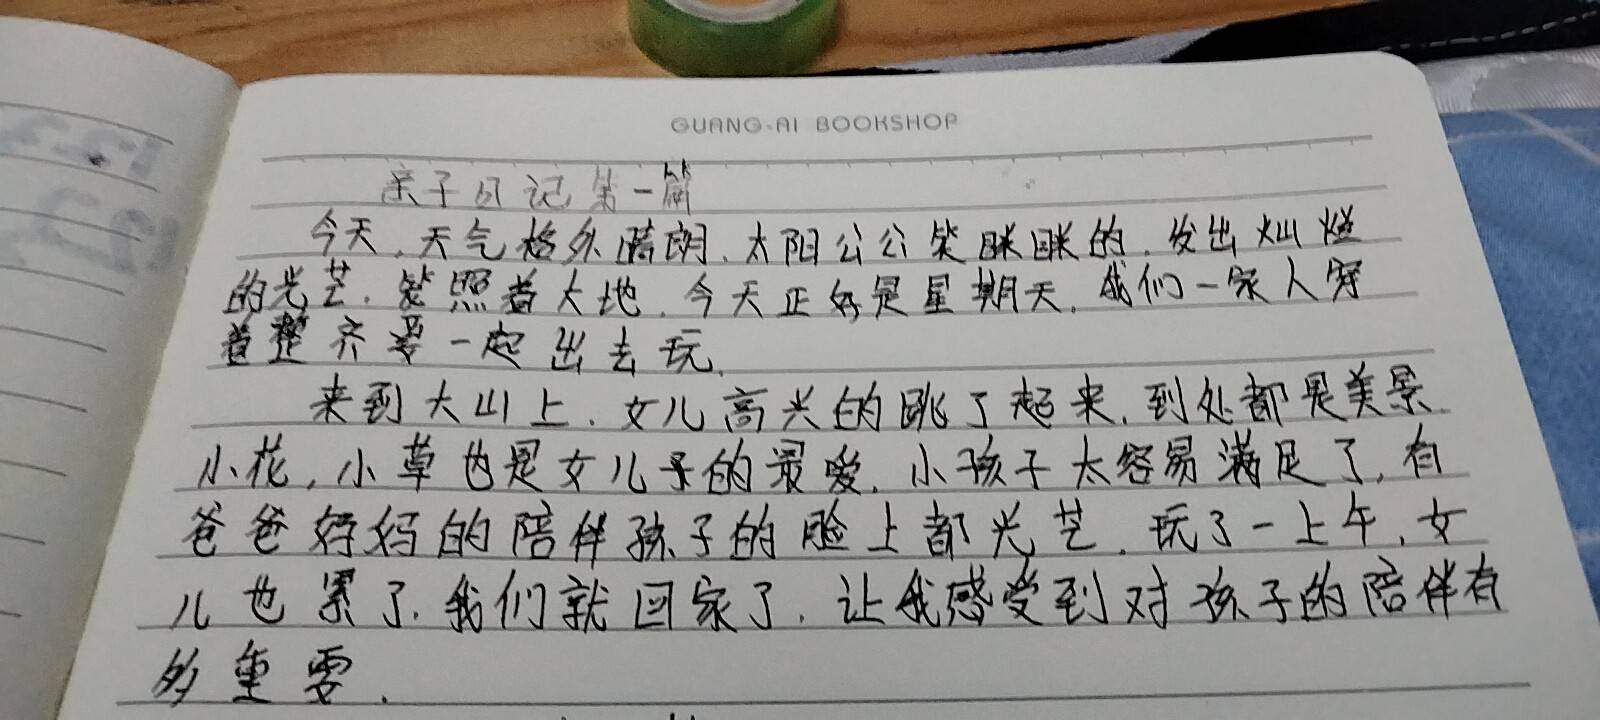 GUANG·AI BOOKSHOP
亲子日记第一篇
今天,天气格外晴朗,太阳公公笑眯眯的,发出灿烂
的光芒,笼照着大地,今天正好是星期天,我们一家人穿
着整齐要一起出去玩,
来到大山上,女儿高兴的跳了起来,到处都是美景
小花,小草也是女儿子的最爱,小孩子太容易满足了,有
爸爸妈妈的陪伴孩子的脸上都光芒,玩了一上午,女
儿也累了,我们就回家了,让我感受到对孩子的陪伴有
多重要.